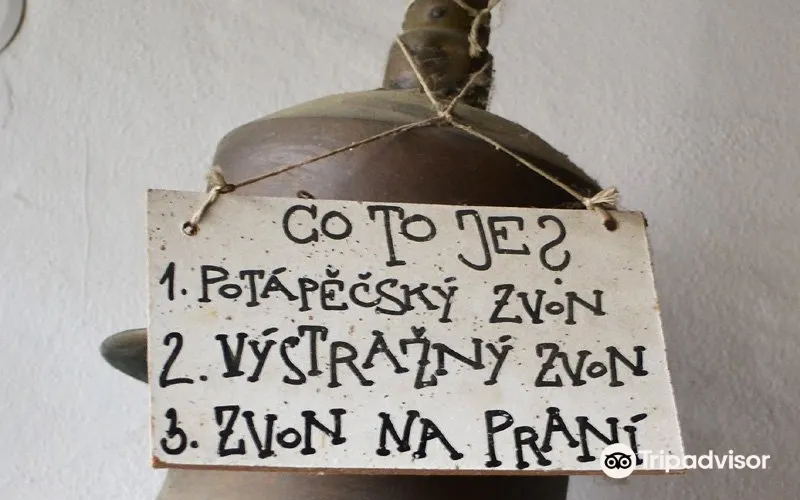 CO TO JE?
1. POTÁPĚČSKÝ ZVON
2. VÝSTRAŽNÝ ZVON
3. ZVON NA PRANÍ
Tripadvisor